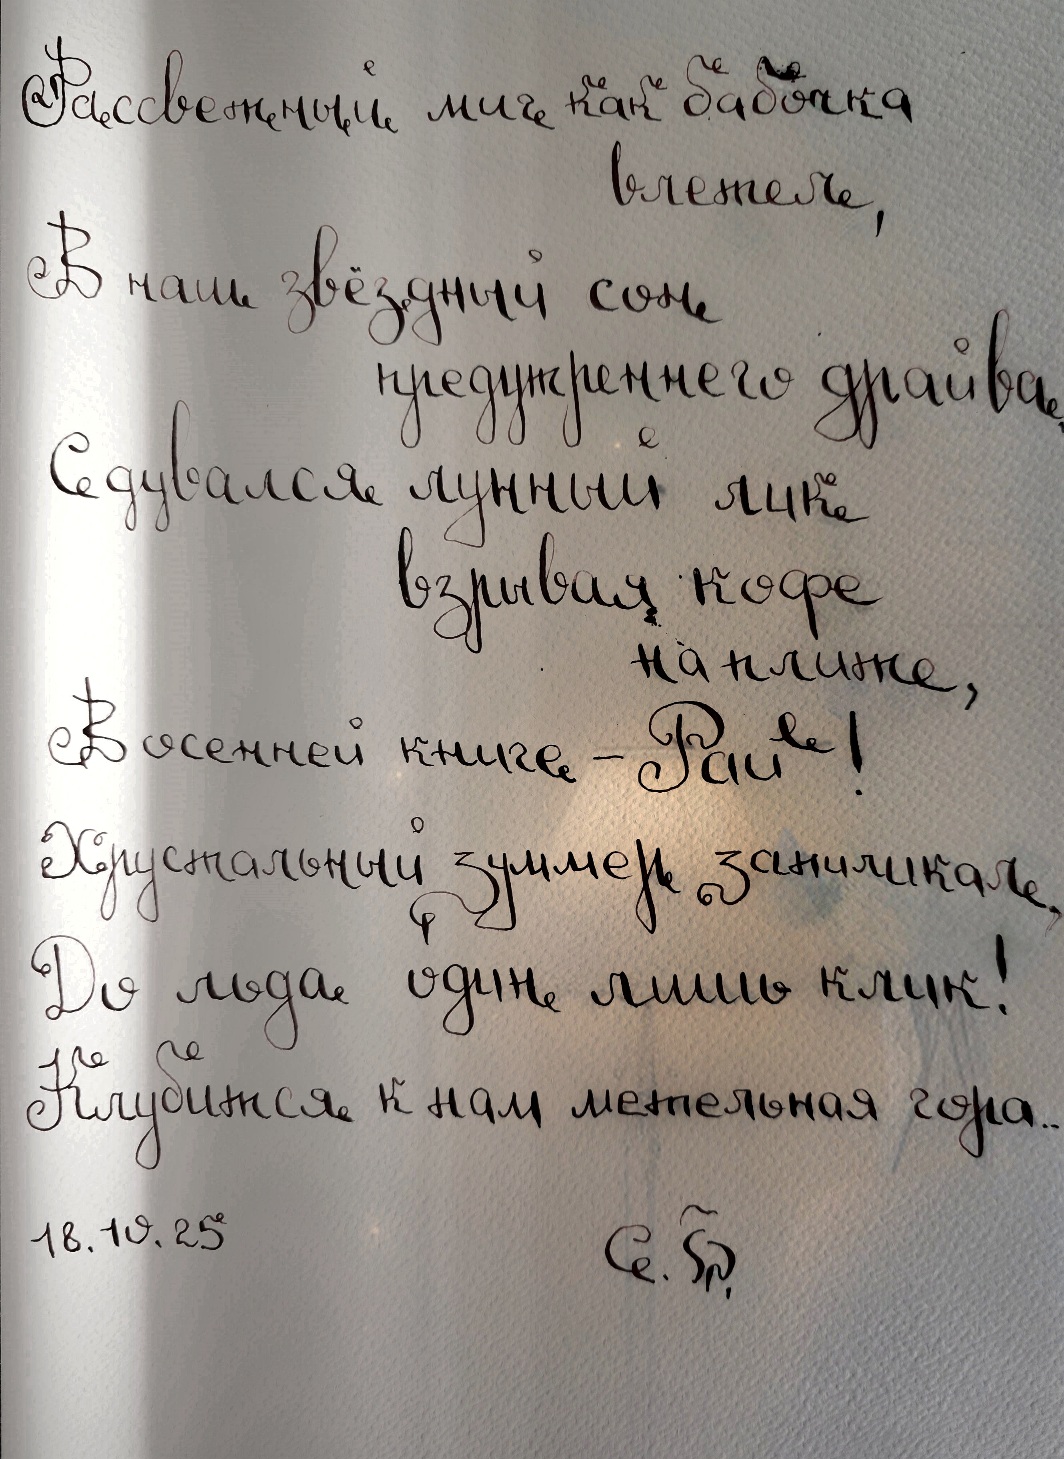 Рассветный миг как бабочка
влетел,
В наш звёздный сон
предутреннего драйва,
Сдувался лунный лик
взрывая кофе
на плите,
В осенней книге – Рай!
Хрустальный зуммер запиликал,
До льда один лишь клик!
Клубится к нам метельная гора..
18.10.25 С. Бр.